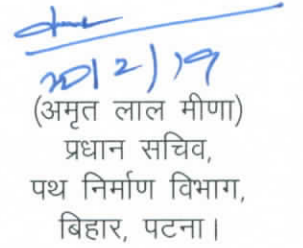 20/2/19
(अमृत लाल मीणा)
प्रधान सचिव,
पथ निर्माण विभाग,
बिहार, पटना।